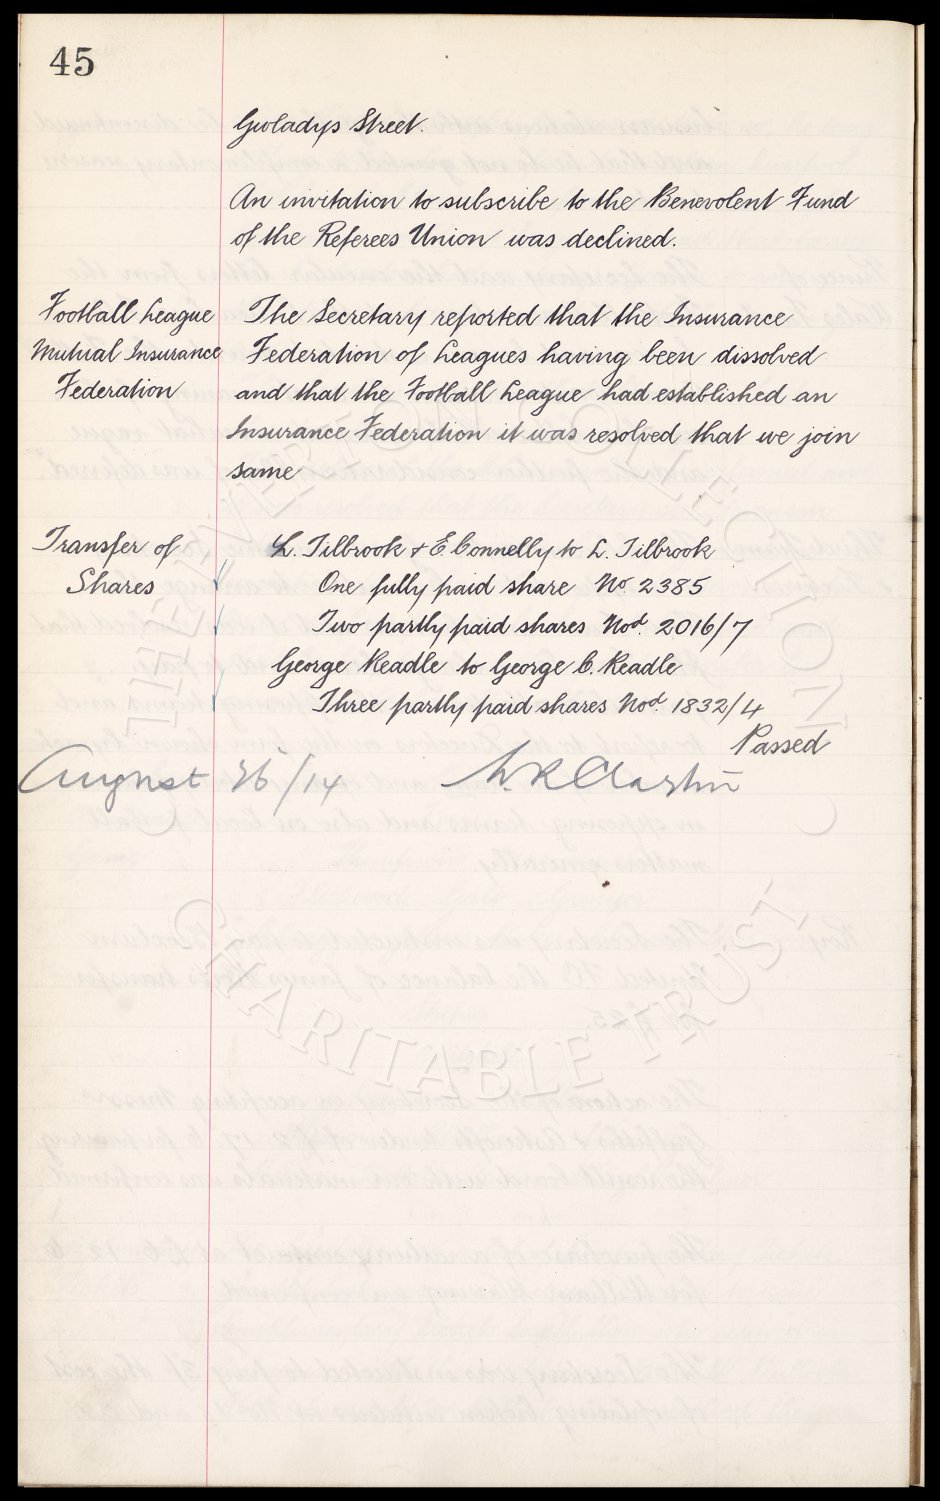 45
Gwladys Street.
An invitation to subscribe to the Benevolent Fund
of the Referees Union was declined.
Football League
Mutual Insurance
Federation
The Secretary reported that the Insurance
Federation of Leagues having been dissolved
and that the Football League had established an
Insurance Federation it was resolved that we join
same
Transfer of
Shares
L. Tilbrook & E Connelly to L. Tilbrook
One fully paid share No 2385
Two partly paid shares Nod. 2016/7
George Readle to George C. Readle
Three partly paid shares Nod. 1832/4
Passed
August 26/14
THE EVERTON COLLECTION
CHARITABLE TRUST